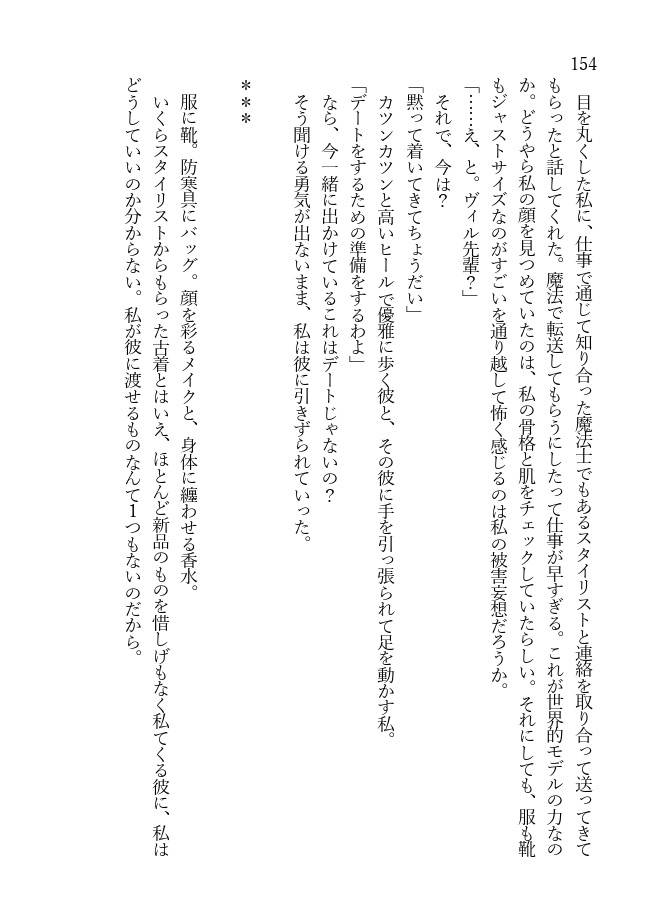 154
目を丸くした私に、仕事で通じて知り合った魔法士でもあるスタイリストと連絡を取り合って送ってきて
もらったと話してくれた。魔法で転送してもらうにしたって仕事が早すぎる。これが世界的モデルの力なの
か。どうやら私の顔を見つめていたのは、私の骨格と肌をチェックしていたらしい。それにしても、服も靴
もジャストサイズなのがすごいを通り越して怖く感じるのは私の被害妄想だろうか。
「……え、と。ヴィル先輩？」
それで、今は？
「黙って着いてきてちょうだい」
カツンカツンと高いヒールで優雅に歩く彼と、その彼に手を引っ張られて足を動かす私。
「デートをするための準備をするわよ」
なら、今一緒に出かけているこれはデートじゃないの？
そう聞ける勇気が出ないまま、私は彼に引きずられていった。
＊＊＊
服に靴。防寒具にバッグ。顔を彩るメイクと、身体に纏わせる香水。
いくらスタイリストからもらった古着とはいえ、ほとんど新品のものを惜しげもなく私てくる彼に、私は
どうしていいのか分からない。私が彼に渡せるものなんて１つもないのだから。